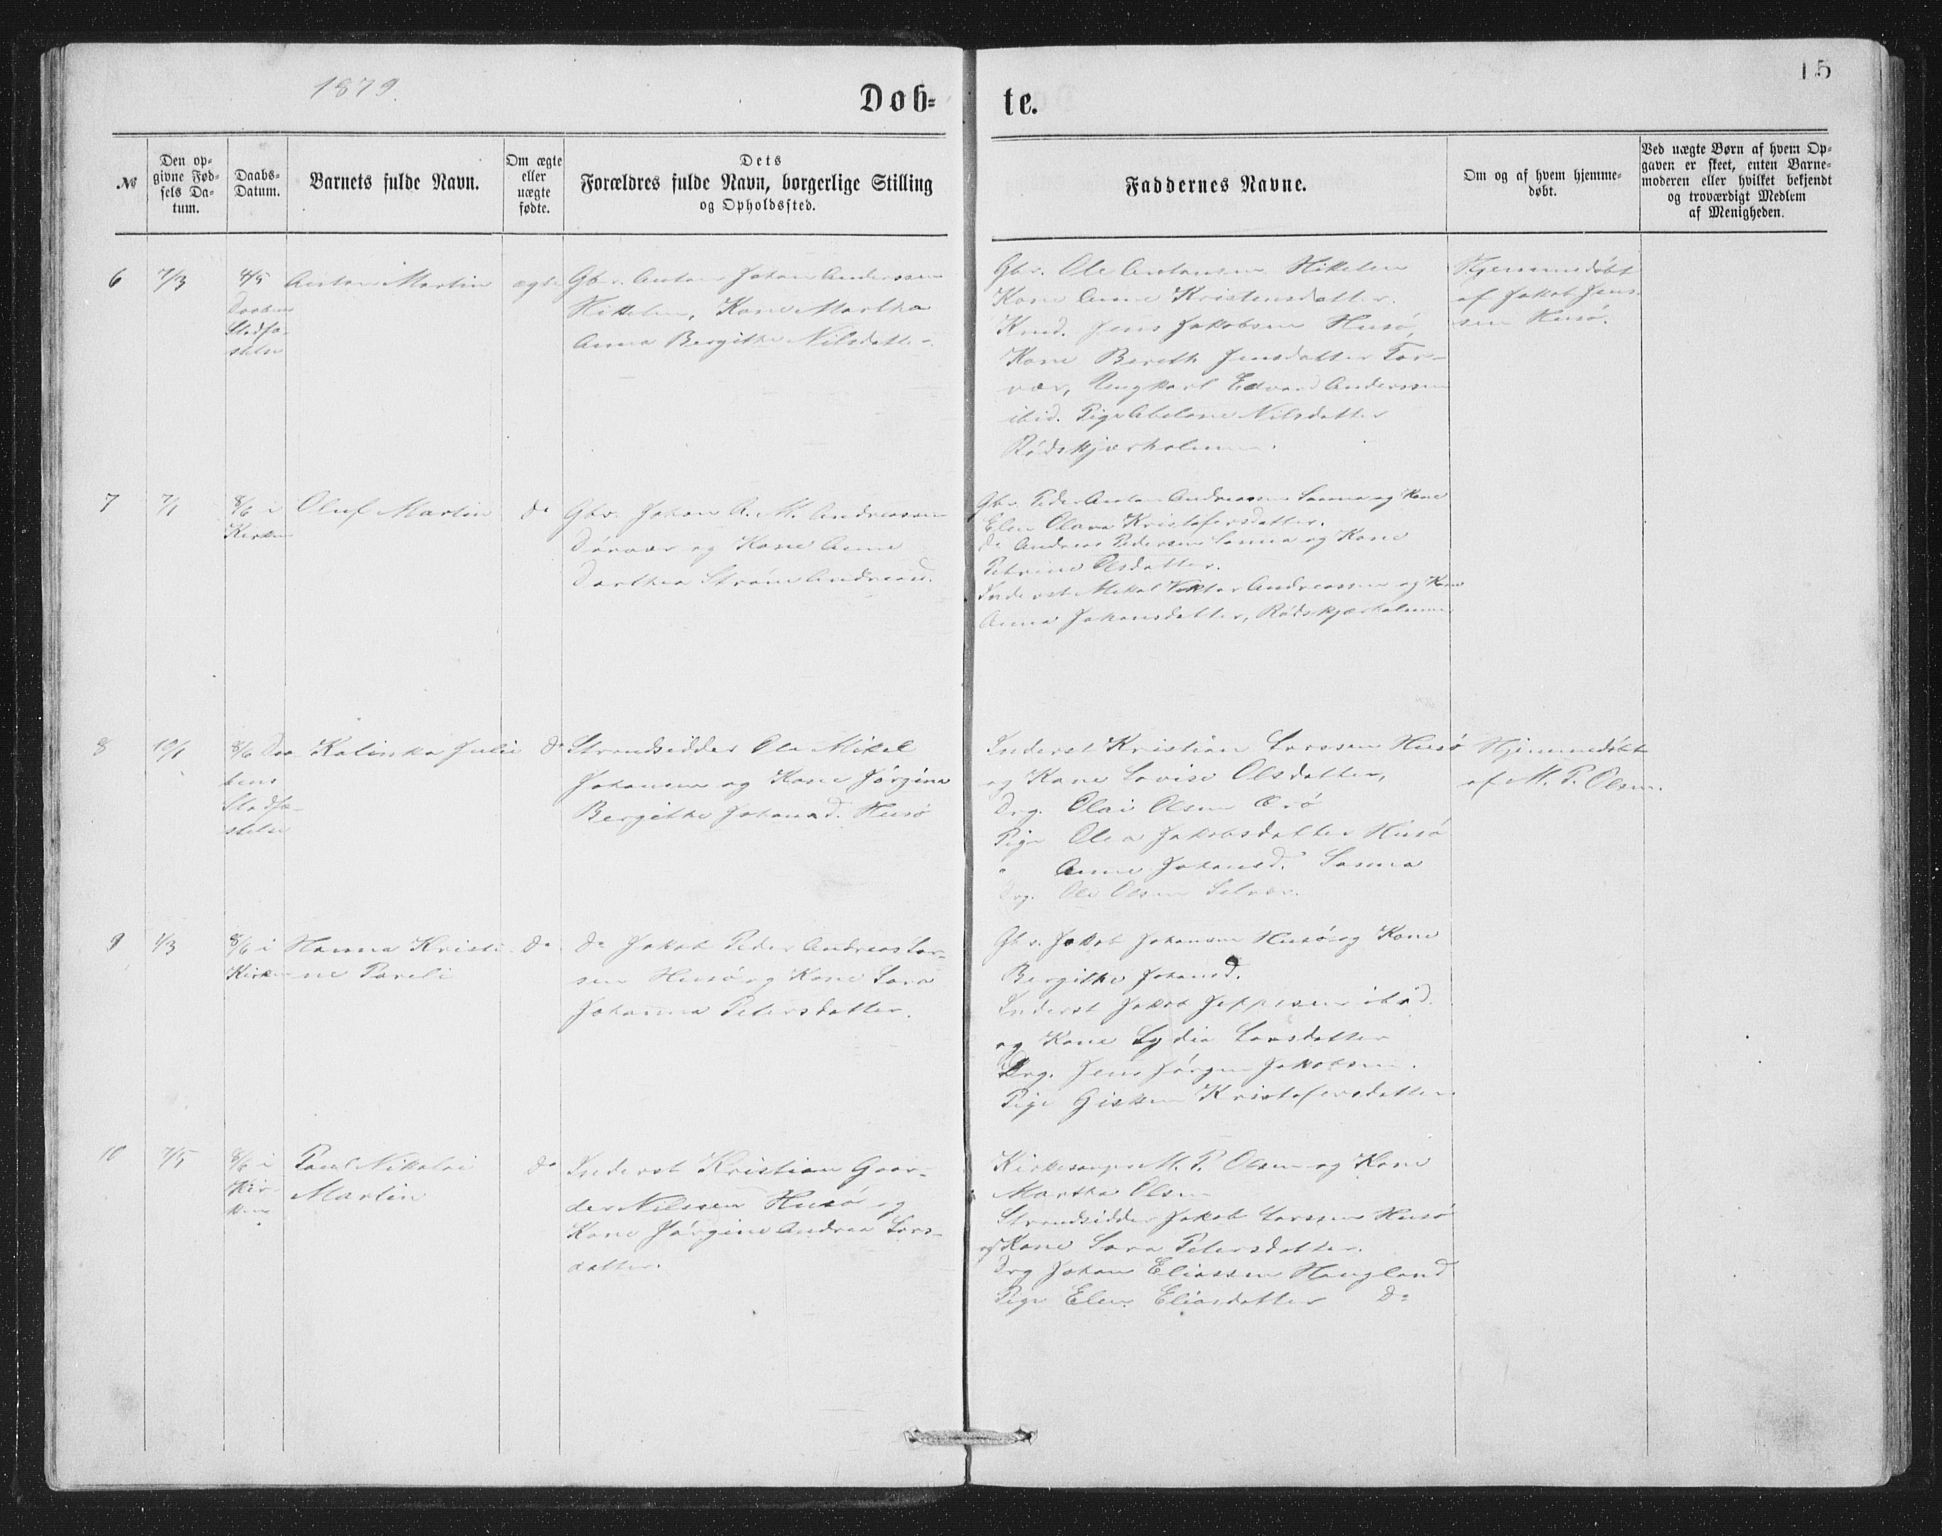 1879.
15
Døb-
te.
№
Den op-
givne Fød-
sels Da-
tum.
Daabs-
Datum.
Barnets fulde Navn.
Om ægte
eller
uægte
fødte.
Dets
Forældres fulde Navn, borgerlige Stilling
og Opholdssted.
Faddernes Navne.
Om og af hvem hjemme-
døbt.
Ved uægte Børn af hvem Op-
gaven er skeet, enten Barne-
moderen eller hvilket bekjendt
og troværdigt Medlem
af Menigheden.
6
7/3
4/5
Daabens
Stadfæ-
stelse
Anton Martin
ægte
Gbr. Anton Johan Anderssen
Kone Martha
Anna Bergithe Nilsdatter.
Gbr. Ole Antonsen
Kone Anne Kristensdatter.
Jens Jakobsen Husø,
Kone Bereth Jensdatter Tor-
vær, Ungkarl Edvard Anderssen
ibid. Pige Abelone Nilsdatter
Rødskjærholmen.
Hjemmedøbt
af Jakob Jens-
sen Husø.
7
7/1
8/6 i
Kirken
Oluf Martin
do
Gbr. Johan A. M. Andreassen
og Kone Anne
Dorthea Strøm Andreasd.
Gbr. Peder Anton Andreassen Sanna og Kone
Elen Olava Kristofersdatter.
do Andreas Pedersen Sanna og Kone
Petrine Olsdatter.
Inderst Mikal Viktor Andreassen og Kone
Anna Johansdatter, Rødskjærholmen
8
10/1
8/6 Daa-
bens
Stadfæ-
stelse
Kalinka Julie
do
Strandsidder Ole Mikal
Johansen og Kone Jørgine
Bergithe Johansd. Husø
Inderst Kristian Larssen Husø
og Kone Lovise Olsdatter,
Drg. Olai Olsen
Pige Olea Jakobsdatter Husø
" Anne Johansd. Sanna
Drg. Ole Olsen Selvær.
Hjemmedøbt
af M. P. Olsen.
9
1/3
8/6 i
Kirken
Hanna Kristi-
ne Pareli
do
do Jakob Peder Andreas Lar-
sen Husø og Kone Sara
Johanna Petersdatter.
Gbr. Jakob Johansen Husø og Kone
Bergithe Johansd.
Inderst Jakob Jeppesen ibid.
og Kone Lydia Larsdatter
Drg. Jens Jørgen Jakobsen.
Pige Gisken Kristofersdatter.
10
7/5
8/6 i
Kir-
ken
Paul Nikolai
Martin
do
Inderst Kristian Gaar-
der Nilssen Husø og
Kone Jørgine Andrea Lars-
datter.
Kirkesanger M. P. Olsen og Kone
Martha Olsen
Strandsidder Jakob Larssen Husø
og Kone Sara Petersdatter.
Drg Johan Eliassen Haugland
Pige Elen Eliasdatter do